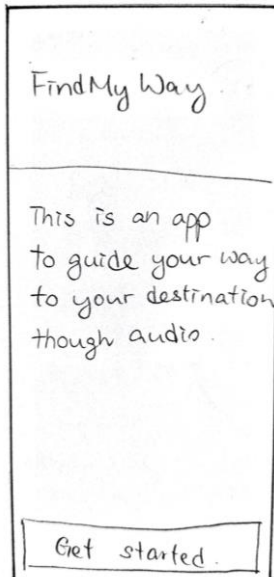 FindMy Way
This is an app
to guide your way
to your destination
though audio.
Get started.